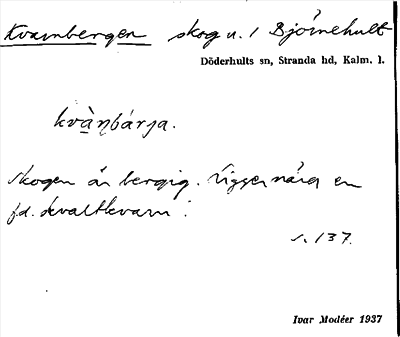 Kvarnbergen skog u. 1 Bjørnehult
Döderhults sn, Stranda hd, Kalm. l.
kvà̀ṇbárja.
Skogen är bergig. Ligger nära en
fd. skvaltkvarn.
s. 137.
Ivar Modéer 1937